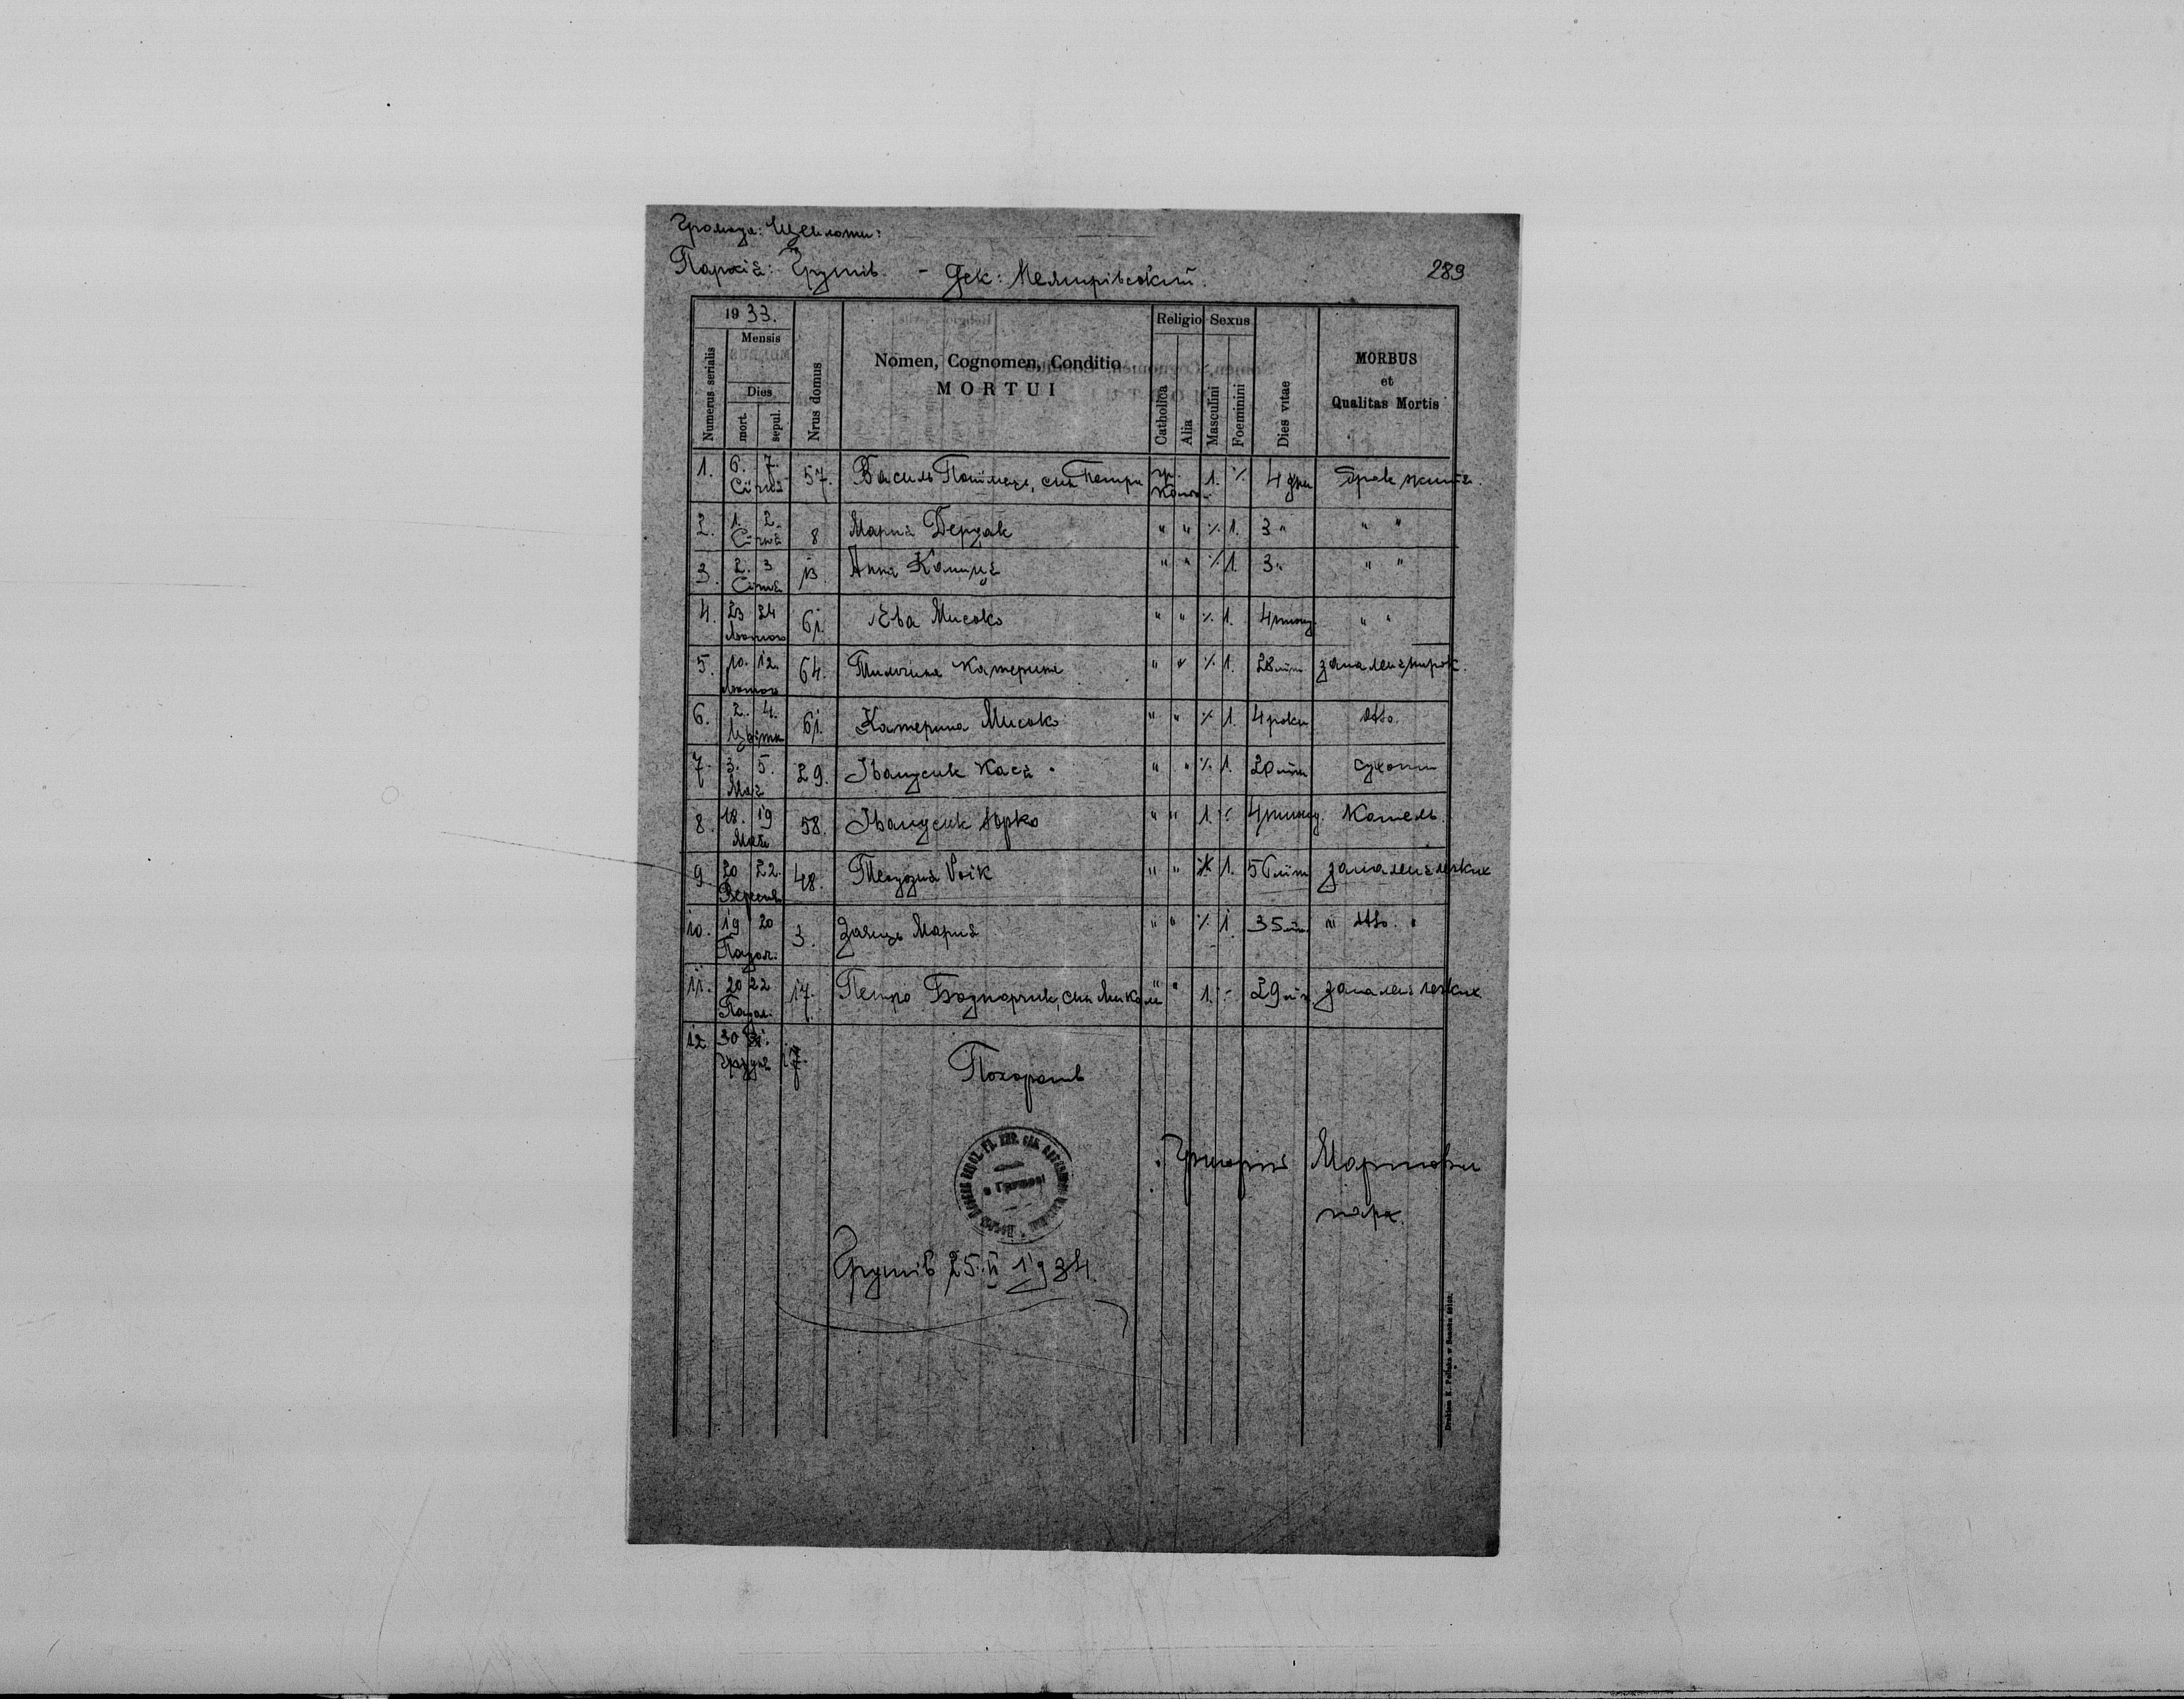 Громада: Щеплоти:
Парохія: Грушів. - Дек: Немирівский.
289
1933.
Numerus serialis
Mensis
Dies
mort.
sepul.
Nrus domus
Nomen, Cognomen, Conditio
MORTUI
Religio
Catholica
Alia
Sexus
Masculini
Foeminini
Dies vitae
MORBUS
et
Qualitas Mortis
1. 6. 7. Січня 57. Василь син Петра гр. 1. % 4 дни брак життя.
2. 1. 2. Січня 8 Мария Дердак " " % 1. 3 " " "
3. 2. 3 Січня 13 Анна " " % 1. 3 " " "
4. 23 24 Лютого 61. Ева Мисько " " % 1. 4 " "
5. 10. 12. Лютого 64. Катерина " " % 1. 28 літ
6. 2. 4. Цвітня 61. Катерина Мисько " " % 1. 4 роки dtto.
7. 3. 5. Мая 29. Іванусик Кася " " % 1. 20 літ сухоти
8. 18. 19 Мая 58. Іванусик Юрко " " 1. % 4 Кашель.
9 20 22. Вересня 48. Теодозия " " 1. 56 літ запаленє легких
10. 19 20 Падол. 3. Заяць Мария " " % 1 35 літ " dtto. "
11. 20 22 Падол. 17. Петро Боднарчик, син Миколи " " 1. % 29 літ. запаленє легких
12 30 31. Грудня 17.
Похоронив
Григорий Мартович
парох.
в Грушеві
Грушів 25. II 1934.